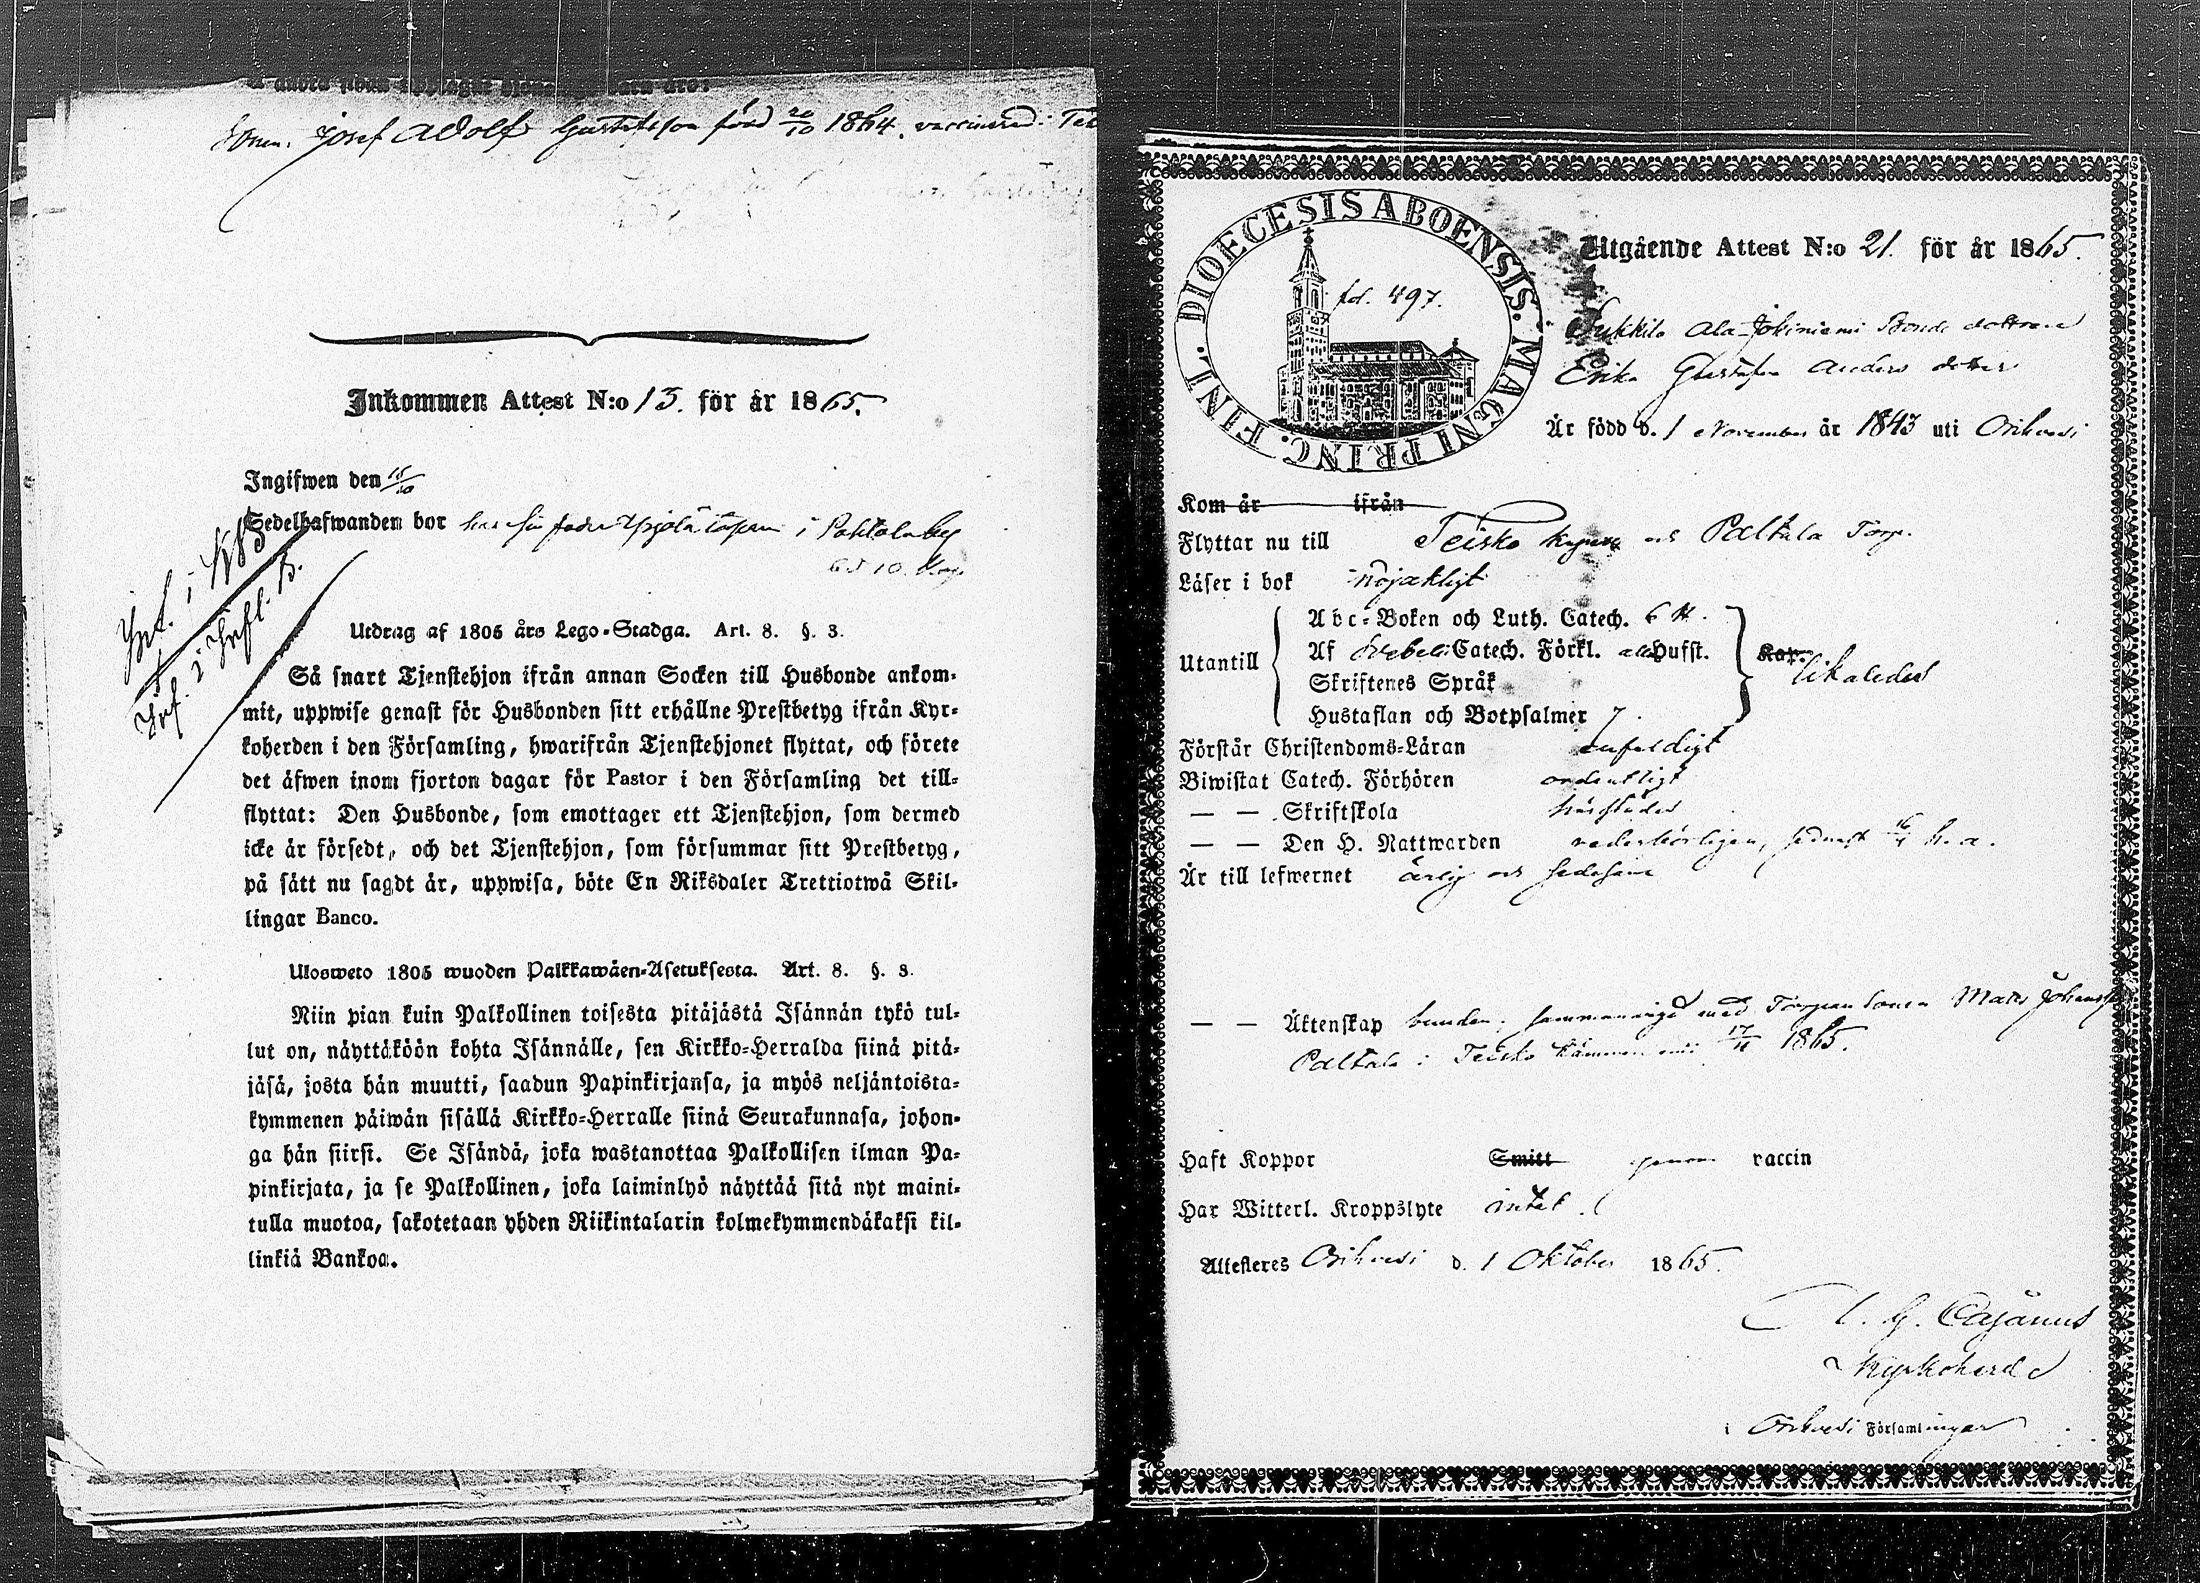 Sonen. Josef Adolf Gustafsson född 20/10 1864. vaccinerad.
Inkommen Attest N:o 13. för år 1865.
Ingifwen den 15/10
Sedelhafwanden bor hos sin fader i
6 d 10. Kop
Inf. i KB
Irf. i Infl. B.
Utdrag af 1805 års Lego-Stadga. Art. 8. §. 3.
Så snart Tjenstehjon ifrån annan Socken till Husbonde ankom-
mit, uppwise genast för Husbonden sitt erhållne Prestbetyg ifrån Kyr-
koherden i den Församling, hwarifrån Tjenstehjonet flyttat, och förete
det äfwen inom fjorton dagar för Pastor i den Församling det till-
flyttat: Den Husbonde, som emottager ett Tjenstehjon, som dermed
icke är försedt, och det Tjenstehjon, som försummar sitt Prestbetyg,
på sätt nu sagdt är, uppwisa, böte En Riksdaler Trettiotwå Skil-
lingar Banco.
Ulosweto 1805 wuoden Palkkawäen-Asetuksesta. Art. 8. §. 3.
Niin pian kuin Palkollinen toisesta pitäjästä Isännän tykö tul-
lut on, näyttäköön kohta Isännälle, sen Kirkko-Herralda siinä pitä-
jäsä, josta hän muutti, saadun Papinkirjansa, ja myös neljäntoista-
kymmenen päiwän sisällä Kirkko-Herralle siinä Seurakunnasa, johon-
ga hän siirsi. Se Isändä, joka wastanottaa Palkollisen ilman Pa-
pinkirjata, ja se Palkollinen, joka laiminlyö näyttää sitä nyt maini-
tulla muotoa, sakotetaan yhden Riikintalarin kolmekymmendäkaksi kil-
linkiä Bankoa.
DIOECESIS ABOENSIS. MAGNI PRINC. FINL.
fol. 497.
Utgående Attest N:o 21. för år 1865.
Sukkila Ala-Jokiniemi Bonde dottren
Erika Gustafva Anders dotter
Är född d. 1 November år 1843 uti Orihvesi
Kom år ifrån
Flyttar nu till Teisko kapell och Paltala Torp.
Läser i bok nöjaktligt
Utantill
Abc-Boken och Luth. Catech. 6 H.
Af Svebeli Catech. Förkl. alla Hufst.
Skriftenes Språk
Hustaflan och Botpsalmer 7.
Kap.
likaledes
Förstår Christendoms-Läran enfaldigt
Biwistat Catech. Förhören ordentligt
— — Skriftskola härstädes
— — Den H. Nattwarden vederbörligen, sednast h. a.
Är till lefwernet ärlig och sedesam
— — Äktenskap bunden, sammanvigd med Torpare Sonen Mats Johansson
Paltala i Teisko 1865.
Haft Koppor Smitt genom vaccin
Har Witterl. Kroppslyte intet.
Attesteres Orihvesi d. 1 Oktober 1865.
G. Cajanus
Kyrkoherde
i Orihvesi Församlingar